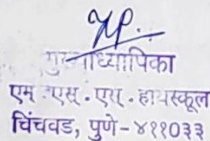 मुख्याध्यापिका
एम्.एस्.एस्.हायस्कूल
चिंचवड, पुणे-४११०३३